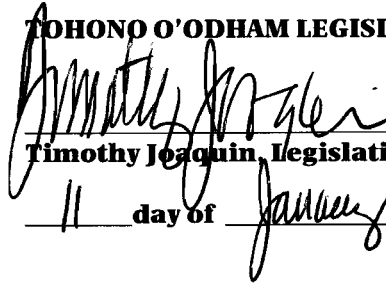 TOHONO O'ODHAM LEGISL
Timothy Joaquin
Timothy Joaquin, Legislati
11 day of January